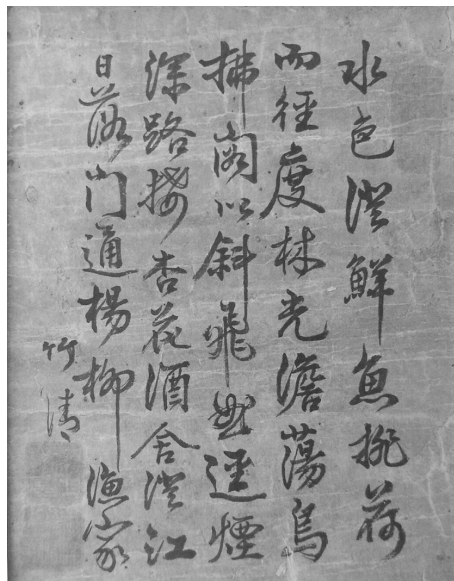 水色澄鮮魚排荷
而徑度林光澹蕩鳥
拂閣以斜飛曲逕煙
深路接杏花酒舍澄江
日落門通楊柳漁家
竹清